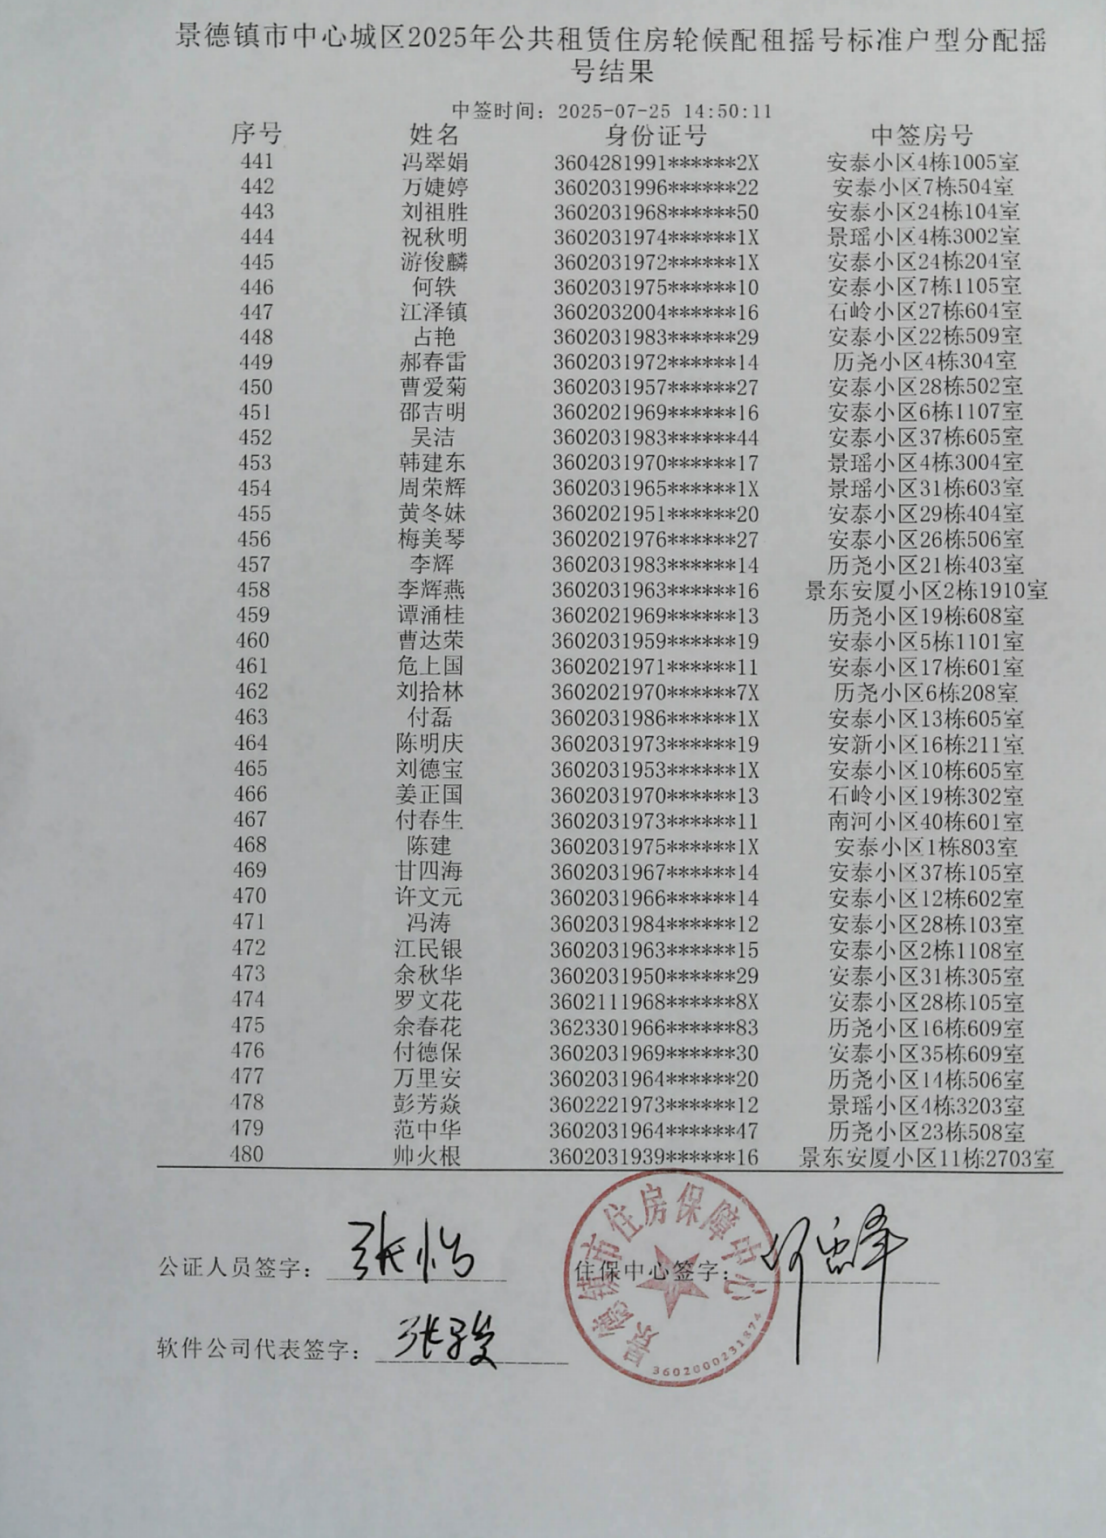 景德镇市中心城区2025年公共租赁住房轮候配租摇号标准户型分配摇
号结果
中签时间：2025-07-25 14:50:11
序号 姓名 身份证号 中签房号
441 冯翠娟 3604281991******2X 安泰小区4栋1005室
442 万婕婷 3602031996******22 安泰小区7栋504室
443 刘祖胜 3602031968******50 安泰小区24栋104室
444 祝秋明 3602031974******1X 景瑶小区4栋3002室
445 游俊麟 3602031972******1X 安泰小区24栋204室
446 何轶 3602031975******10 安泰小区7栋1105室
447 江泽镇 3602032004******16 石岭小区27栋604室
448 占艳 3602031983******29 安泰小区22栋509室
449 郝春雷 3602031972******14 历尧小区4栋304室
450 曹爱菊 3602031957******27 安泰小区28栋502室
451 邵吉明 3602021969******16 安泰小区6栋1107室
452 吴洁 3602031983******44 安泰小区37栋605室
453 韩建东 3602031970******17 景瑶小区4栋3004室
454 周荣辉 3602031965******1X 景瑶小区31栋603室
455 黄冬妹 3602021951******20 安泰小区29栋404室
456 梅美琴 3602021976******27 安泰小区26栋506室
457 李辉 3602031983******14 历尧小区21栋403室
458 李辉燕 3602031963******16 景东安厦小区2栋1910室
459 谭涌桂 3602021969******13 历尧小区19栋608室
460 曹达荣 3602031959******19 安泰小区5栋1101室
461 危上国 3602021971******11 安泰小区17栋601室
462 刘拾林 3602021970******7X 历尧小区6栋208室
463 付磊 3602031986******1X 安泰小区13栋605室
464 陈明庆 3602031973******19 安新小区16栋211室
465 刘德宝 3602031953******1X 安泰小区10栋605室
466 姜正国 3602031970******13 石岭小区19栋302室
467 付春生 3602031973******11 南河小区40栋601室
468 陈建 3602031975******1X 安泰小区1栋803室
469 甘四海 3602031967******14 安泰小区37栋105室
470 许文元 3602031966******14 安泰小区12栋602室
471 冯涛 3602031984******12 安泰小区28栋103室
472 江民银 3602031963******15 安泰小区2栋1108室
473 余秋华 3602031950******29 安泰小区31栋305室
474 罗文花 3602111968******8X 安泰小区28栋105室
475 余春花 3623301966******83 历尧小区16栋609室
476 付德保 3602031969******30 安泰小区35栋609室
477 万里安 3602031964******20 历尧小区14栋506室
478 彭芳焱 3602221973******12 景瑶小区4栋3203室
479 范中华 3602031964******47 历尧小区23栋508室
480 帅火根 3602031939******16 景东安厦小区11栋2703室
景德镇市住房保障中心
公证人员签字： 张怡 住保中心签字：
软件公司代表签字：
3602000231874